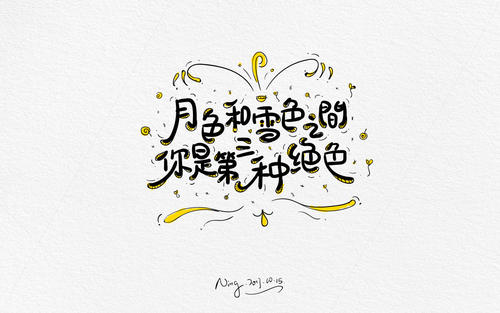 月色和雪色之間
你是第三种绝色
Ning. 2017.10.15.